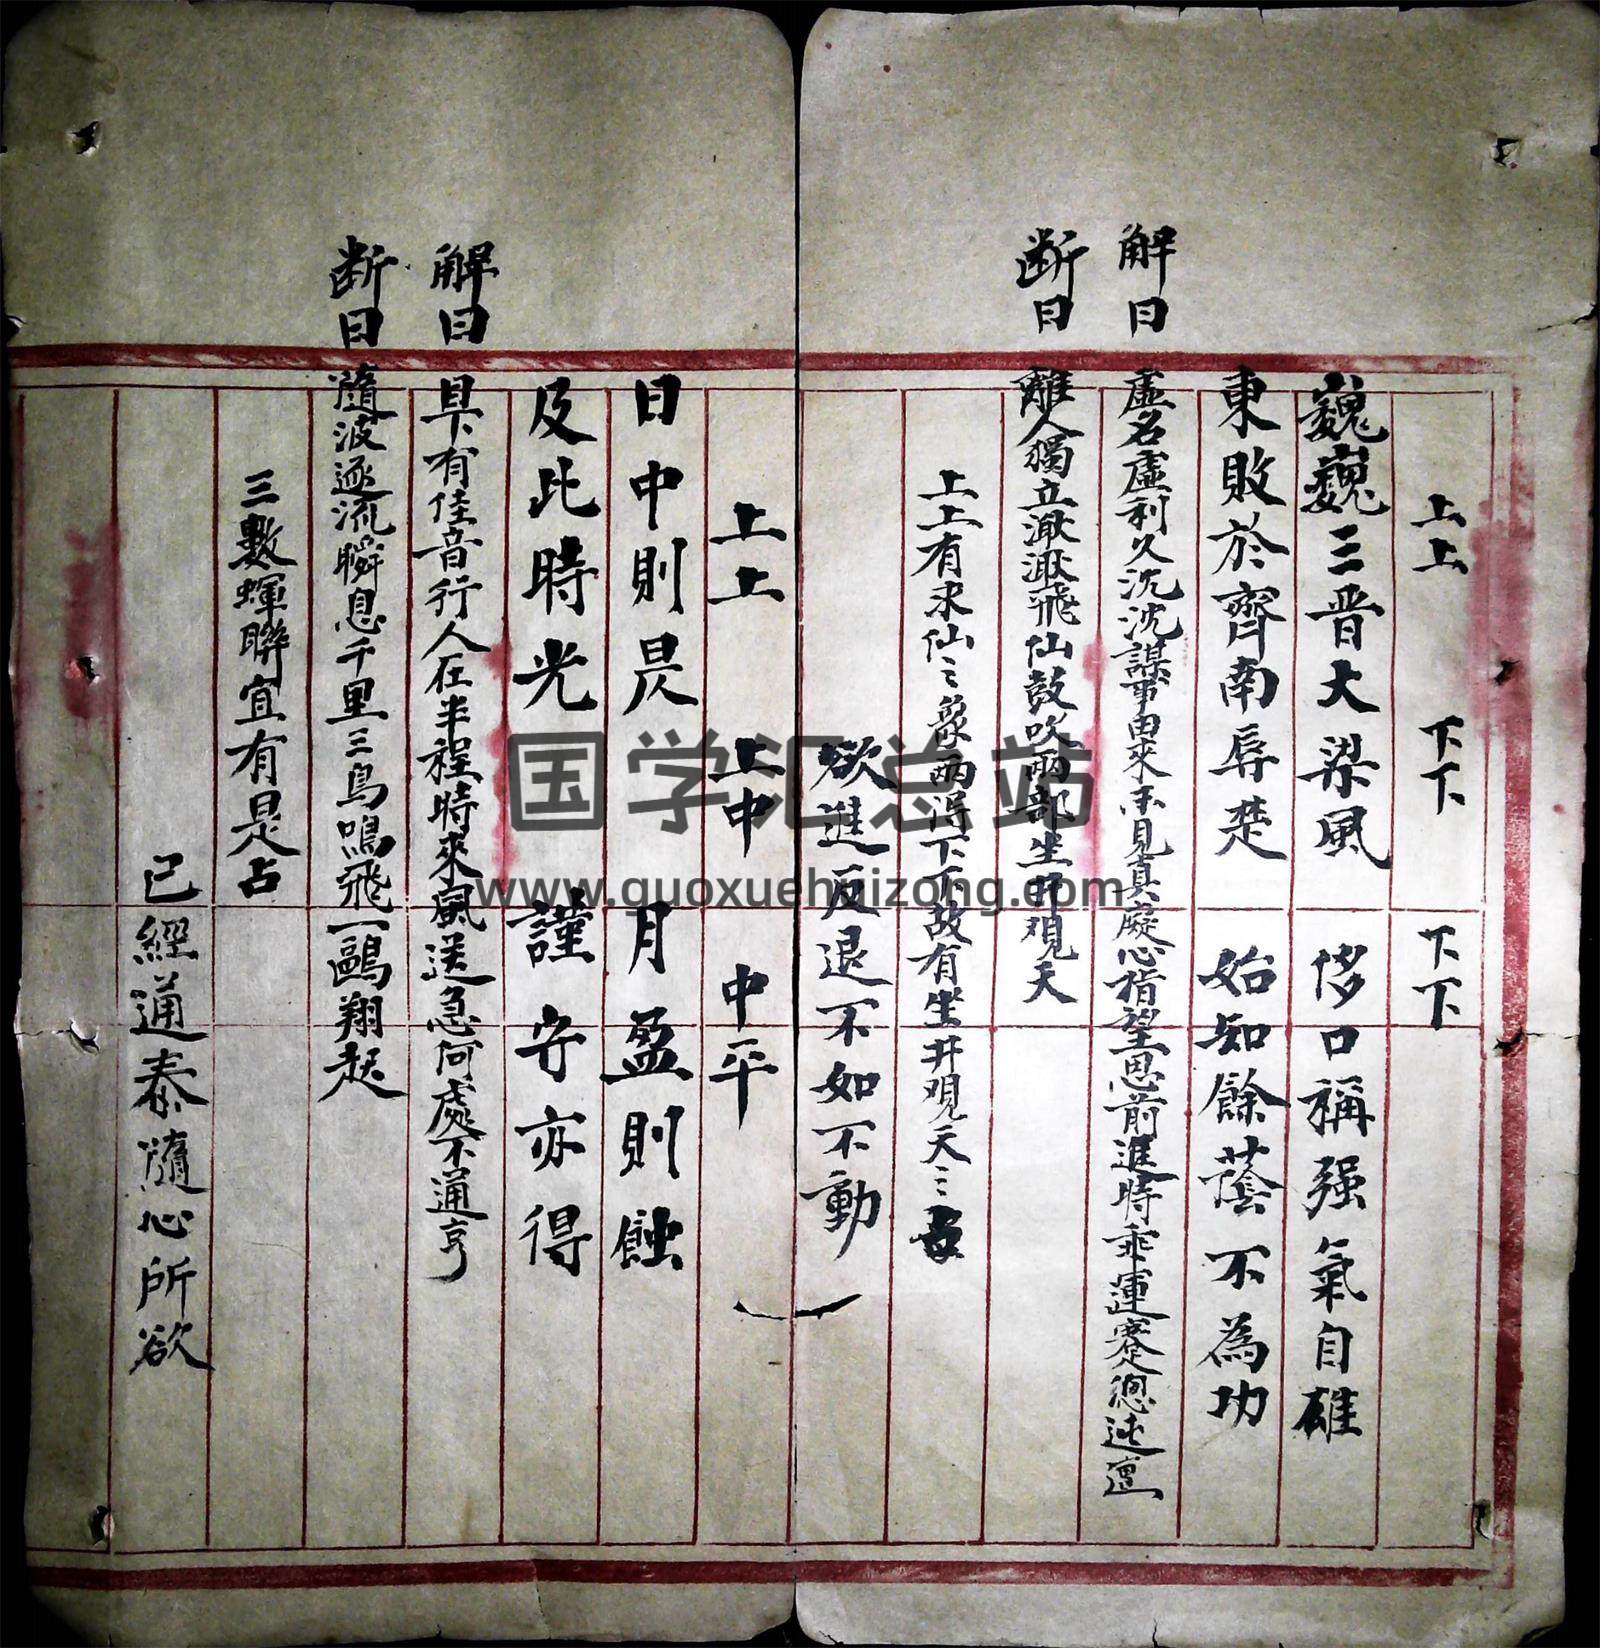 上上 下下 下下
巍巍三晋大梁風 侈口稱强氣自雄
東敗於齊南辱楚 始知餘蔭不為功
解曰
虛名虛利久沉沈謀事由來不見真癡心指望思前進時乖運蹇總迍邅
断曰
離人獨立潊潊飛仙鼓吹兩部坐井观天
上上有求仙之象两得下下故有坐井观天之占
欲進反退不如不動
上上 上中 中平
日中則昃 月盈則蝕
及此時光 謹守亦得
解曰
早下有佳音行人在半程時來風送急何處不通亨
断曰
隨波逐流瞬息千里三鳥鳴飛一鷗翔起
三數蟬聯宜有是占
已經通泰隨心所欲
国学汇总站
www.guoxuehuizong.com